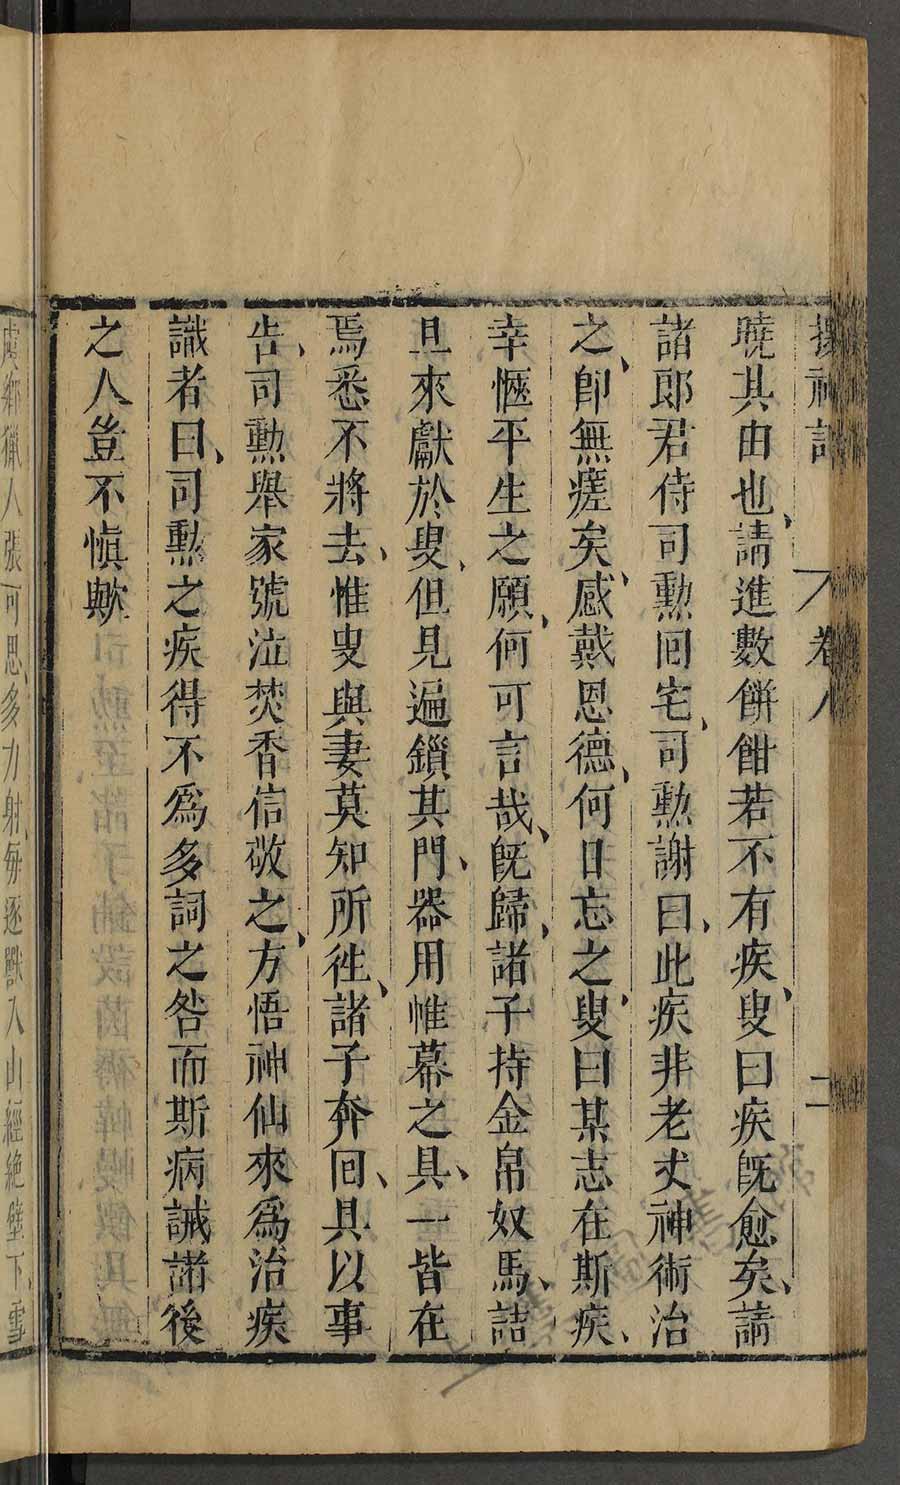 搜神記
卷八
二
曉其由也請進數餅餌若不有疾叟曰疾旣愈矣請
諸郎君侍司勲囘宅司勲謝曰此疾非老丈神術治
之卽無瘥矣感戴恩德何日忘之叟曰某志在斯疾
幸愜平生之願何可言哉旣歸諸子持金帛奴馬詰
旦來獻於叟但見遍鎖其門器用帷幕之具一皆在
焉悉不將去惟叟與妻莫知所徃諸子奔囘具以事
告司勲舉家號泣焚香信敬之方悟神仙來爲治疾
識者曰司勲之疾得不爲多詞之咎而斯病誡諸後
之人豈不愼歟
虞鄉獵人張可思多力射每逐獸入山經絶壁下雪